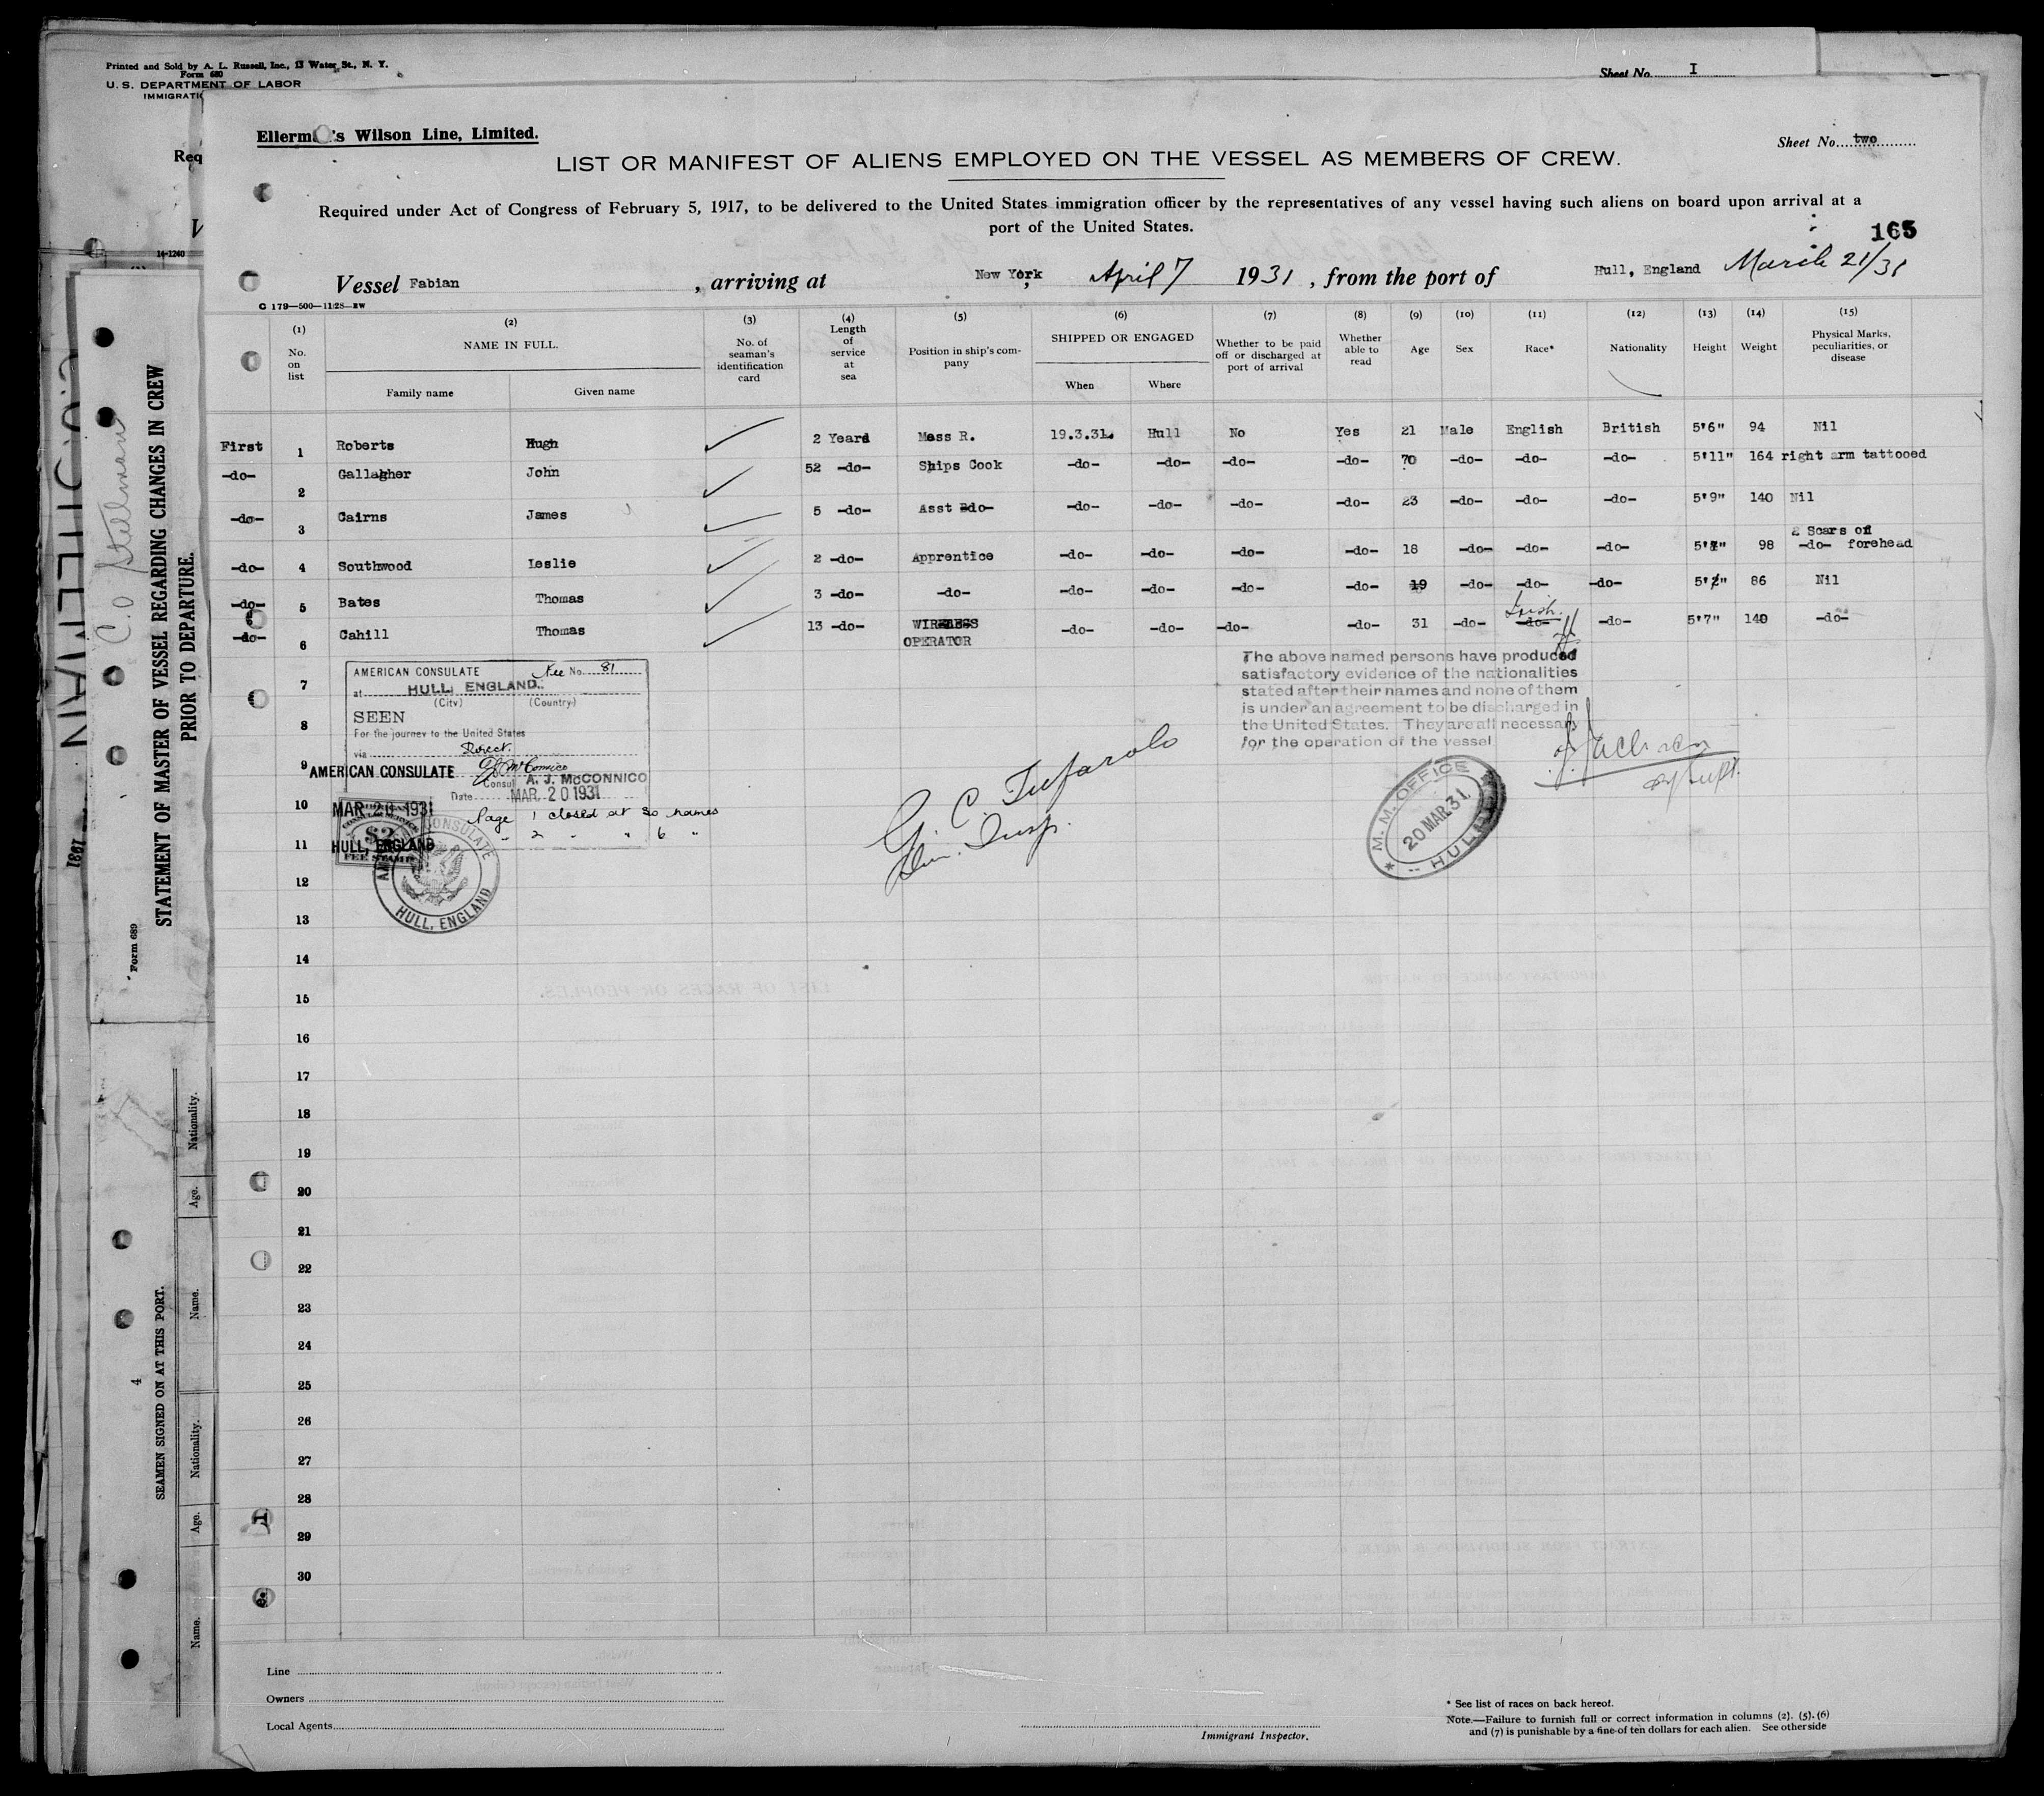 Printed and Sold by A. L. Russell, Inc., 13 Water St., N. Y.
Form 680
U. S. DEPARTMENT OF LABOR
Sheet No. I
Req
14-1240
Ellerm 's Wilson Line, Limited.
Sheet No. two
LIST OR MANIFEST OF ALIENS EMPLOYED ON THE VESSEL AS MEMBERS OF CREW.
Required under Act of Congress of February 5, 1917, to be delivered to the United States immigration officer by the representatives of any vessel having such aliens on board upon arrival at a
port of the United States.
165
Vessel Fabian, arriving at New York, April 7 1931, from the port of Hull, England March 21/31
G 179—500—11/28—RW
(1) No. on list
(2) NAME IN FULL.
Family name Given name
(3) No. of seaman's identification card
(4) Length of service at sea
(5) Position in ship's company
(6) SHIPPED OR ENGAGED
When Where
(7) Whether to be paid off or discharged at port of arrival
(8) Whether able to read
(9) Age
(10) Sex
(11) Race*
(12) Nationality
(13) Height
(14) Weight
(15) Physical Marks, peculiarities, or disease
First 1 Roberts Hugh 2 Years Mess R. 19.3.31. Hull No Yes 21 Male English British 5'6" 94 Nil
-do- 2 Gallagher John 52 -do- Ships Cook -do- -do- -do- -do- 70 -do- -do- -do- 5'11" 164 right arm tattooed
-do- 3 Cairns James 5 -do- Asst -do- -do- -do- -do- -do- 23 -do- -do- -do- 5'9" 140 Nil
-do- 4 Southwood Leslie 2 -do- Apprentice -do- -do- -do- -do- 18 -do- -do- -do- 98 2 Scars on -do- forehead
-do- 5 Bates Thomas 3 -do- -do- -do- -do- -do- -do- 19 -do- -do- -do- 5'2" 86 Nil
-do- 6 Cahill Thomas 13 -do- WIRELESS OPERATOR -do- -do- -do- -do- 31 -do- -do- Irish -do- 5'7" 140 -do-
The above named persons have produced
satisfactory evidence of the nationalities
stated after their names and none of them
is under an agreement to be discharged in
the United States. They are all necessary
for the operation of the vessel
AMERICAN CONSULATE Fee No. 81
at HULL, ENGLAND.
(City) (Country)
SEEN
For the journey to the United States
via Direct.
AMERICAN CONSULATE
Consul A. J. McCONNICO
Date MAR. 20 1931
MAR 20 1931
$2
FEE STAMP
HULL, ENGLAND
Page 1 closed at 30 names
" 2 " " 6 "
HULL, ENGLAND
G. C. Tufarolo
Imm. Insp.
M. M. OFFICE
20 MAR 31
HULL
7
8
9
10
11
12
13
14
15
16
17
18
19
20
21
22
23
24
25
26
27
28
29
30
Line
Owners
Local Agents
Immigrant Inspector.
* See list of races on back hereof.
Note.—Failure to furnish full or correct information in columns (2). (5). (6)
and (7) is punishable by a fine of ten dollars for each alien. See other side
C.O. Stillman
STATEMENT OF MASTER OF VESSEL REGARDING CHANGES IN CREW
PRIOR TO DEPARTURE.
Form 689
C.O. STILLMAN
1931
SEAMEN SIGNED ON AT THIS PORT.
4
Name. Age. Nationality. Name. Age. Nationality.